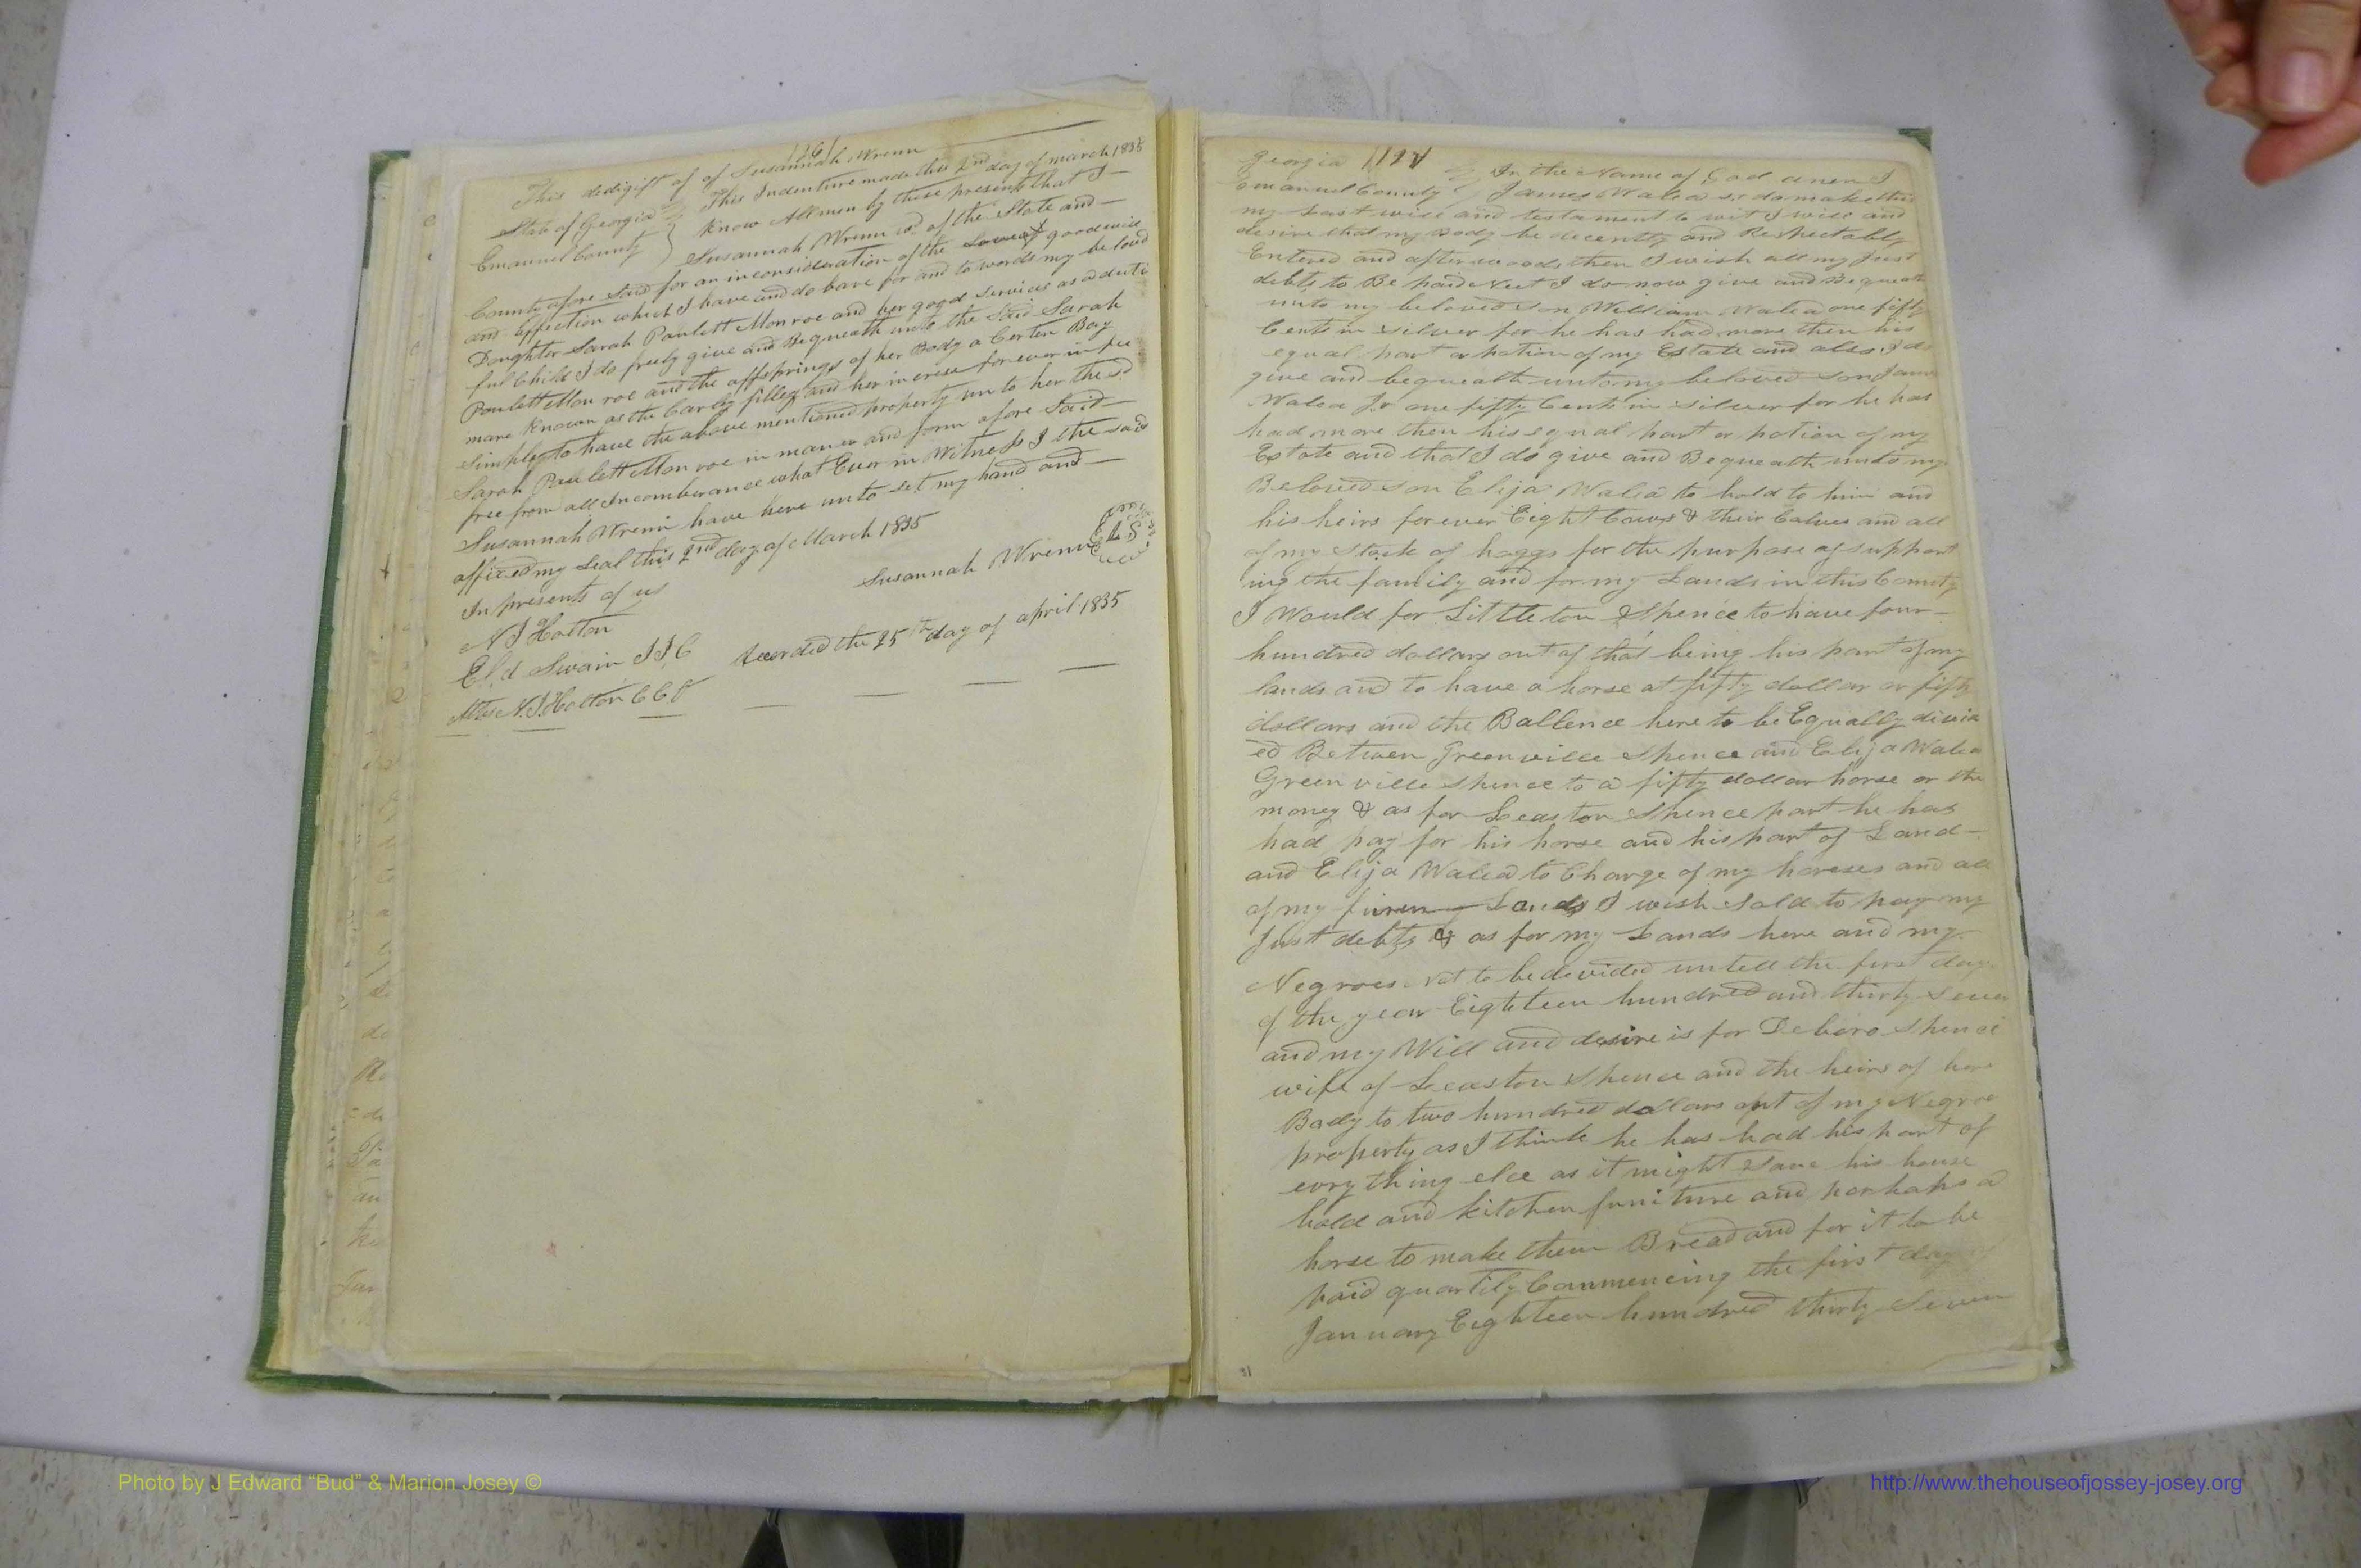 126
This dedigift of of Susannah Wrenn
State of Georgia } This Indenture made this 2nd day of march 1835
Emanuel County } Know All men by these presents that I
Susannah Wrenn sd. of the State and
County afore Said for an in consideration of the Love of good will
and affection which I have and do bare for and to words my beloved
Doughter Sarah Paulett Monroe and her good services as a duti
ful Child I do freely give and Bequeath unto the Said Sarah
Paulett Mon roe and the offsprings of her Body a Certen Bay
mare Known as the Carly filley and her increse forever in fee
Simple to have the above mentioned property un to her the sd
Sarah Paulett Mon roe in maner and form afore Said
free from all Incomberance what Ever in Witness I the said
Susannah Wrenn have here unto set my hand and
affixed my Seal this 2nd day of March 1835
In presents of us
Susannah Wrenn L S
N J Holton
El,d Swain J I C
Recorded the 25th day of april 1835
Attes N. J. Holton C C O
Georgia
Emanuel County } In the Name of God amen I
James Walea sr do make this
my Last will and testament to wit I will and
desire that my Body be decently and Respectably
Entered and afterwoods then I wish all my Just
debts to Be paid Next I do now give and Bequeath
unto my beloved son William Walea one fifty
Cents in Silver for he has had more then his
equal part or potion of my Estate and also I do
give and bequeath unto my beloved son James
Walea Jr one fifty Cents in Silver for he has
had more then his equal part or potion of my
Estate and that I do give and Bequeath unto my
Beloved son Elija Walea to hold to him and
his heirs forever Eight Cows & their Calves and all
of my Stock of hoggs for the purpose of support
ing the family and for my Lands in this County
I Would for Littleton Spence to have four
hundred dollars out of that being his part of my
lands and to have a horse at fifty dollar or fifty
dollars and the Ballence here to be Equally divid
ed Between Greenville Spence and Elija Walea
Green ville Spence to a fifty dollar horse or the
money & as for Leaston Spence part he has
had pay for his horse and his part of Land
and Elija Walea to Charge of my horeses and all
of my Lands I wish Sold to pay my
Just debts & as for my Lands here and my
Negroes not to be devided untell the first day
of the year Eighteen hundred and thirty Seven
and my Will and desire is for Deboro Spence
wife of Leaston Spence and the heirs of her
Body to two hundred dollars out of my Negroe
property as I think he has had his part of
evry thing else as it might Save his house
hold and kitchen funiture and perhaps a
horse to make them Bread and for it to be
paid quartily Commencing the first day
January Eighteen hundred thirty Seven
Photo by J Edward “Bud” & Marion Josey ©
http://www.thehouseofjossey-josey.org